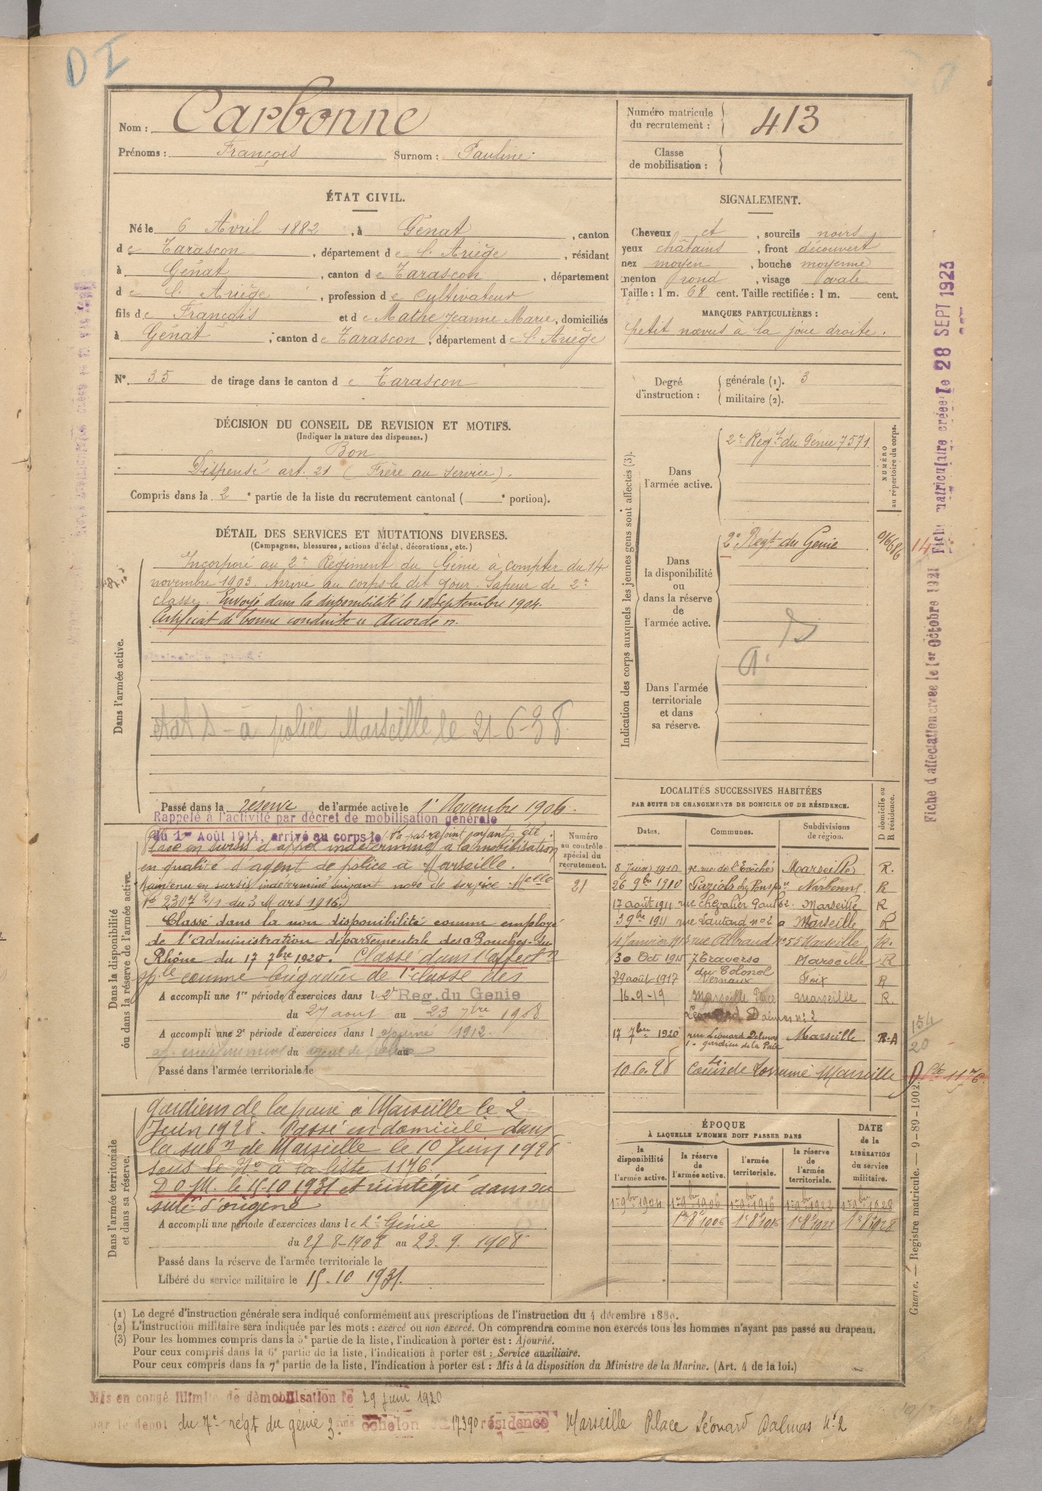 D I
Nom : Carbonne
Prénoms : François Surnom : Pauline
Numéro matricule du recrutement : 413
Classe de mobilisation :
ÉTAT CIVIL.
Né le 6 Avril 1882, à Génat, canton
de Tarascon, département de l'Ariège, résidant
à Génat, canton de Tarascon, département
de l'Ariège, profession de Cultivateur
fils de François et de Mathe Jeanne Marie, domiciliés
à Génat, canton de Tarascon, département de l'Ariège
N° 35 de tirage dans le canton de Tarascon
SIGNALEMENT.
Cheveux et, sourcils noirs
yeux châtains, front découvert
nez moyen, bouche moyenne
menton rond, visage ovale
Taille : 1 m. 68 cent. Taille rectifiée : 1 m. cent.
MARQUES PARTICULIÈRES :
petit nœvus à la joue droite.
Degré d'instruction : générale (1). 3
militaire (2).
DÉCISION DU CONSEIL DE REVISION ET MOTIFS.
(Indiquer la nature des dispenses.)
Bon
Dispensé art. 21 (Frère au service)
Compris dans la 2e partie de la liste du recrutement cantonal ( e portion).
DÉTAIL DES SERVICES ET MUTATIONS DIVERSES.
(Campagnes, blessures, actions d'éclat, décorations, etc.)
Dans l'armée active.
Incorporé au 2e Régiment du Génie à compter du 14
novembre 1903. Arrivé au corps le dit jour. Sapeur de 2e
classe. Envoyé dans la disponibilité le 18 Septembre 1904.
Certificat de bonne conduite "Accordé".
à police Marseille le 21-6-38
Passé dans la réserve de l'armée active le 1er Novembre 1906.
Indication des corps auxquels les jeunes gens sont affectés (3).
NUMÉRO au répertoire du corps.
Dans l'armée active.
2e Régt du Génie 7571
Dans la disponibilité ou dans la réserve de l'armée active.
2e Régt du Génie
Dans l'armée territoriale et dans sa réserve.
Dans la disponibilité ou dans la réserve de l'armée active.
Rappelé à l'activité par décret de mobilisation générale
du 1er Août 1914, arrivé au corps le
Placé en sursis d'appel indéterminé à la mobilisation
en qualité d'agent de police à Marseille.
Maintenu en sursis indéterminé suivant note de service
N° 2307 2/1 du 3 Mars 1916.
Classé dans la non disponibilité comme employé
de l'Administration départementale des Bouches-du-
Rhône du 17 7bre 1920. Classé dans l'affectn
sple comme brigadier de 1e classe des
A accompli une 1re période d'exercices dans le 2e Reg. du Genie
du 27 août au 23 7bre 1908
A accompli une 2e période d'exercices dans l 1912
du au
Passé dans l'armée territoriale le
Numéro au contrôle spécial du recrutement.
21
LOCALITÉS SUCCESSIVES HABITÉES
PAR SUITE DE CHANGEMENTS DE DOMICILE OU DE RÉSIDENCE.
Dates. Communes. Subdivisions de région. D domicile ou R résidence.
8 Juin 1910 rue de l'Evêché Marseille R.
26 9bre 1910 Narbonne R
17 août 1911 rue Chevalier Marseille R
3 9bre 1911 rue Lautard no 2 Marseille R
Marseille
30 Oct 1915 Traverse du Colonel Marseille R
29 août 1917 Vernaux Foix R
16-9-19 Marseille Place Léonard Dalmas no 2 Marseille R
17 7bre 1920 rue Léonard Dalmas gardien de la Paix Marseille R-A
10-6-28 Marseille D
Dans l'armée territoriale et dans sa réserve.
gardiens de la paix à Marseille le 2
Juin 1928. Passé en domicile dans
la subn de Marseille le 10 Juin 1928
sous le No à la liste 1176.
D O M. le 15 10 1931 et réintégré dans sa
subn d'origine
A accompli une période d'exercices dans le 2e Génie
du 27-8-1908 au 23-9-1908
Passé dans la réserve de l'armée territoriale le
Libéré du service militaire le 15-10 1931.
ÉPOQUE
À LAQUELLE L'HOMME DOIT PASSER DANS
la disponibilité de l'armée active.
la réserve de l'armée active.
l'armée territoriale.
la réserve de l'armée territoriale.
DATE de la LIBÉRATION du service militaire.
(1) Le degré d'instruction générale sera indiqué conformément aux prescriptions de l'instruction du 4 décembre 1889.
(2) L'instruction militaire sera indiquée par les mots : exercé ou non exercé. On comprendra comme non exercés tous les hommes n'ayant pas passé au drapeau.
(3) Pour les hommes compris dans la 5e partie de la liste, l'indication à porter est : Ajourné.
Pour ceux compris dans la 6e partie de la liste, l'indication à porter est : Service auxiliaire.
Pour ceux compris dans la 7e partie de la liste, l'indication à porter est : Mis à la disposition du Ministre de la Marine. (Art. 4 de la loi.)
Guerre. — Registre matricule. — 9-89-1902.
Fiche d'affectation créée le 1er Octobre 1921 Fiche matriculaire créée le 28 SEPT 1923
Mis en congé illimité de démobilisation le 29 Juin 1920
par le dépôt du 7e régt du génie 3e échelon 17390 résidence Marseille Place Léonard Dalmas N° 2